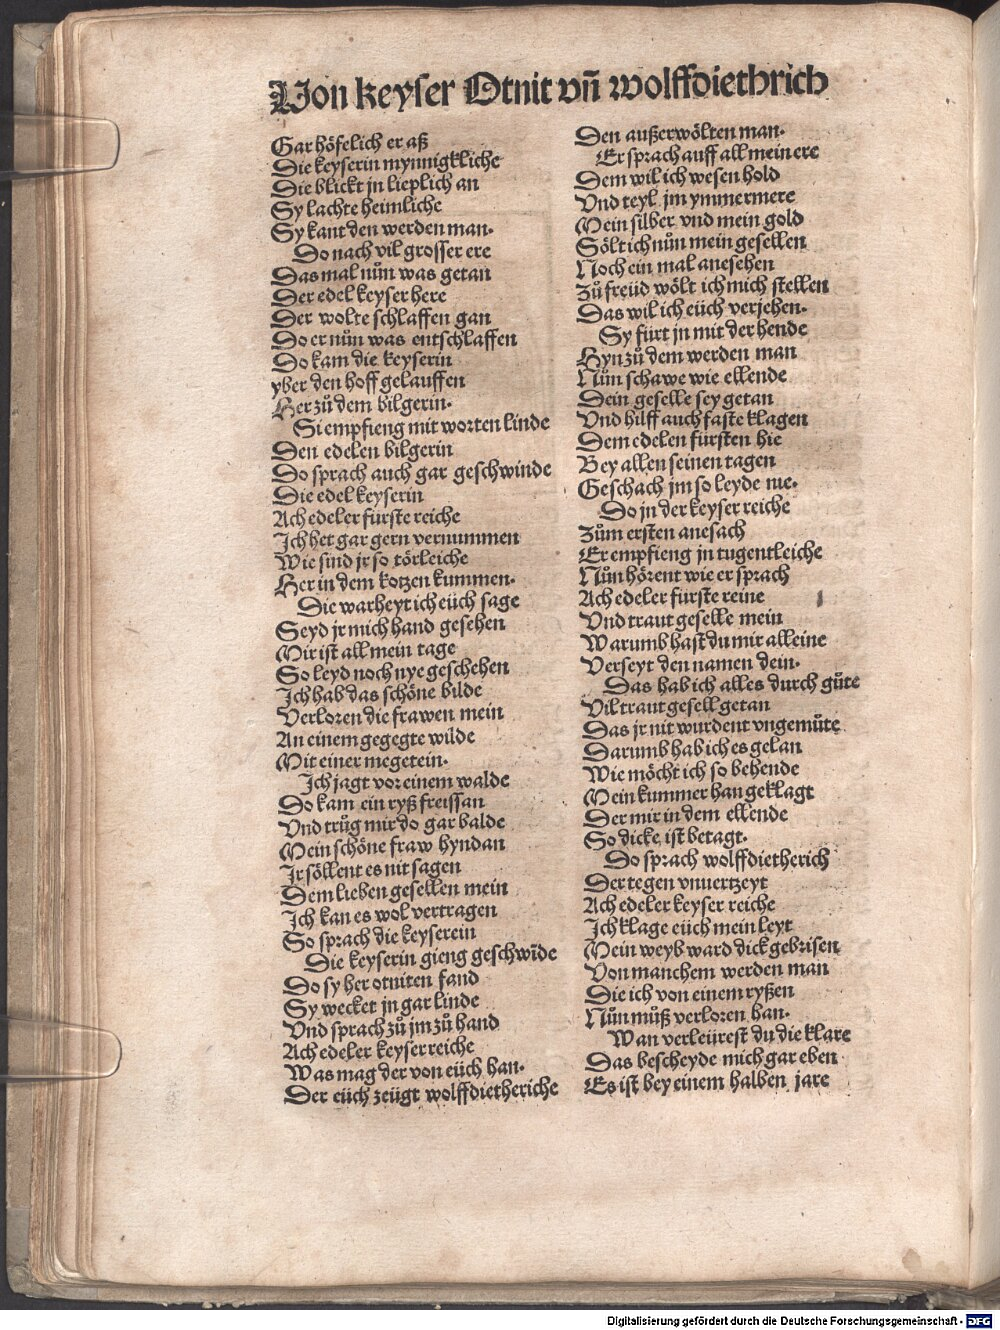 Von keyser Otnit vn̄ wolffdiethrich
Gar höfelich er aß
Die keyserin mynnigkliche
Die blickt jn lieplich an
Sy lachte heimliche
Sy kant den werden man.
Do nach vil grosser ere
Das mal nůn was getan
Der edel keyser here
Der wolte schlaffen gan
Do er nůn was entschlaffen
Do kam die keyserin
yber den hoff gelauffen
Her zů dem bilgerin.
Si empfieng mit worten linde
Den edelen bilgerin
Do sprach auch gar geschwinde
Die edel keyserin
Ach edeler fürste reiche
Ich het gar gern vernummen
Wie sind jr so törleiche
Her in dem kotzen kummen.
Die warheyt ich eüch sage
Seyd jr mich hand gesehen
Mir ist all mein tage
So leyd noch nye geschehen
Ich hab das schöne bilde
Verloren die frawen mein
An einem gegegte wilde
Mit einer megetein.
Ich jagt vor einem walde
Do kam ein ryß freissan
Vnd trůg mir do gar balde
Mein schöne fraw hyndan
Jr söllent es nit sagen
Dem lieben gesellen mein
Ich kan es wol vertragen
So sprach die keyserein
Die keyserin gieng geschwīde
Do sy her otniten fand
Sy wecket jn gar linde
Vnd sprach zů jm zů hand
Ach edeler keyser reiche
Was mag der von eüch han.
Der eüch zeügt wolffdietheriche
Den außerwölten man.
Er sprach auff all mein ere
Dem wil ich wesen hold
Vnd teyl jm ymmermere
Mein silber vnd mein gold
Sölt ich nůn mein gesellen
Noch ein mal anesehen
Zů freüd wölt ich mich stellen
Das wil ich eüch verjehen.
Sy fürt jn mit der hende
Hyn zů dem werden man
Nůn schawe wie ellende
Dein geselle sey getan
Vnd hilff auch faste klagen
Dem edelen fürsten hie
Bey allen seinen tagen
Geschach jm so leyde nie.
Do jn der keyser reiche
Zům ersten anesach
Er empfieng jn tugentleiche
Nůn hörent wie er sprach
Ach edeler furste reine
Vnd traut geselle mein
Warumb hast du mir alleine
Verseyt den namen dein.
Das hab ich alles durch gůte
Vil traut gesell getan
Das jr nit wurdent vngemůte
Darumb hab ich es gelan
Wie möcht ich so behende
Mein kummer han geklagt
Der mir in dem ellende
So dicke ist betagt.
Do sprach wolffdietherich
Der tegen vnuertzeyt
Ach edeler keyser reiche
Ich klage eüch mein leyt
Mein weyb ward dick gebrisen
Von manchem werden man
Die ich von einem ryßen
Nůn můß verloren han.
Wan verleürest du die klare
Das bescheyde mich gar eben
Es ist bey einem halben jare
Digitalisierung gefördert durch die Deutsche Forschungsgemeinschaft - DFG